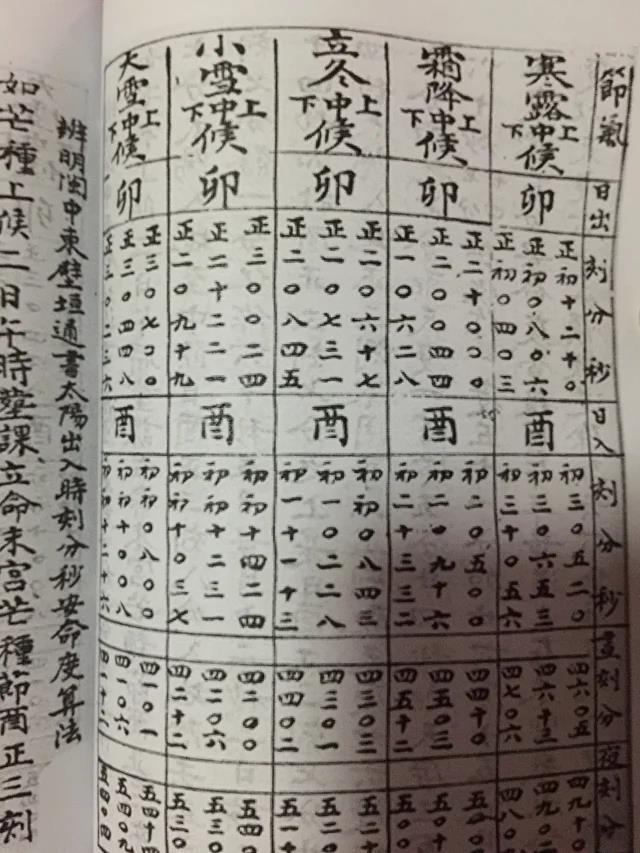 節氣 日出 刻分秒 日入 刻分秒 晝刻分 夜刻分
寒露上中下候 卯 酉
正初十二十〇 初三〇五二〇 四六〇五 四九十〇
正初〇八〇六 初三〇六五三 四六十三 四九〇二
正初〇〇四〇三 初三十〇五六 四七〇六 四八〇
霜降上中下候 卯 酉
正二十〇〇〇 初二〇五〇〇 四四十〇 五〇
正二〇〇四四 初二〇九十六 四五〇三 五〇十
正一〇六二八 初二十三三二 四五十二 五〇〇
立冬上中下候 卯 酉
正二〇六十七 初初〇八四三 四三〇三 五二十
正二〇七三一 初一〇二二八 四三〇一 五二〇
正二〇八四五 初一十一十三 四四〇二 五一十
小雪上中下候 卯 酉
正三〇〇二四 初初十四二四 四二〇〇 五四〇
正二十二二一 初初十二三一 四二〇六 五三〇
正二〇九十九 初初十〇三七 四二十二 五三〇
大雪上中下候 卯 酉
正三〇七〇〇 初初〇八〇〇 四一〇一 五四十四
正三〇四四八 初初十〇〇八 四一〇六 五四〇九
正三〇二三六 初初十二十六 四一十二 五四〇四
辨明閩中東壁垣通書太陽出入時刻分秒安命度算法
如芒種上候二日午時課立命未宮芒種節酉正三刻